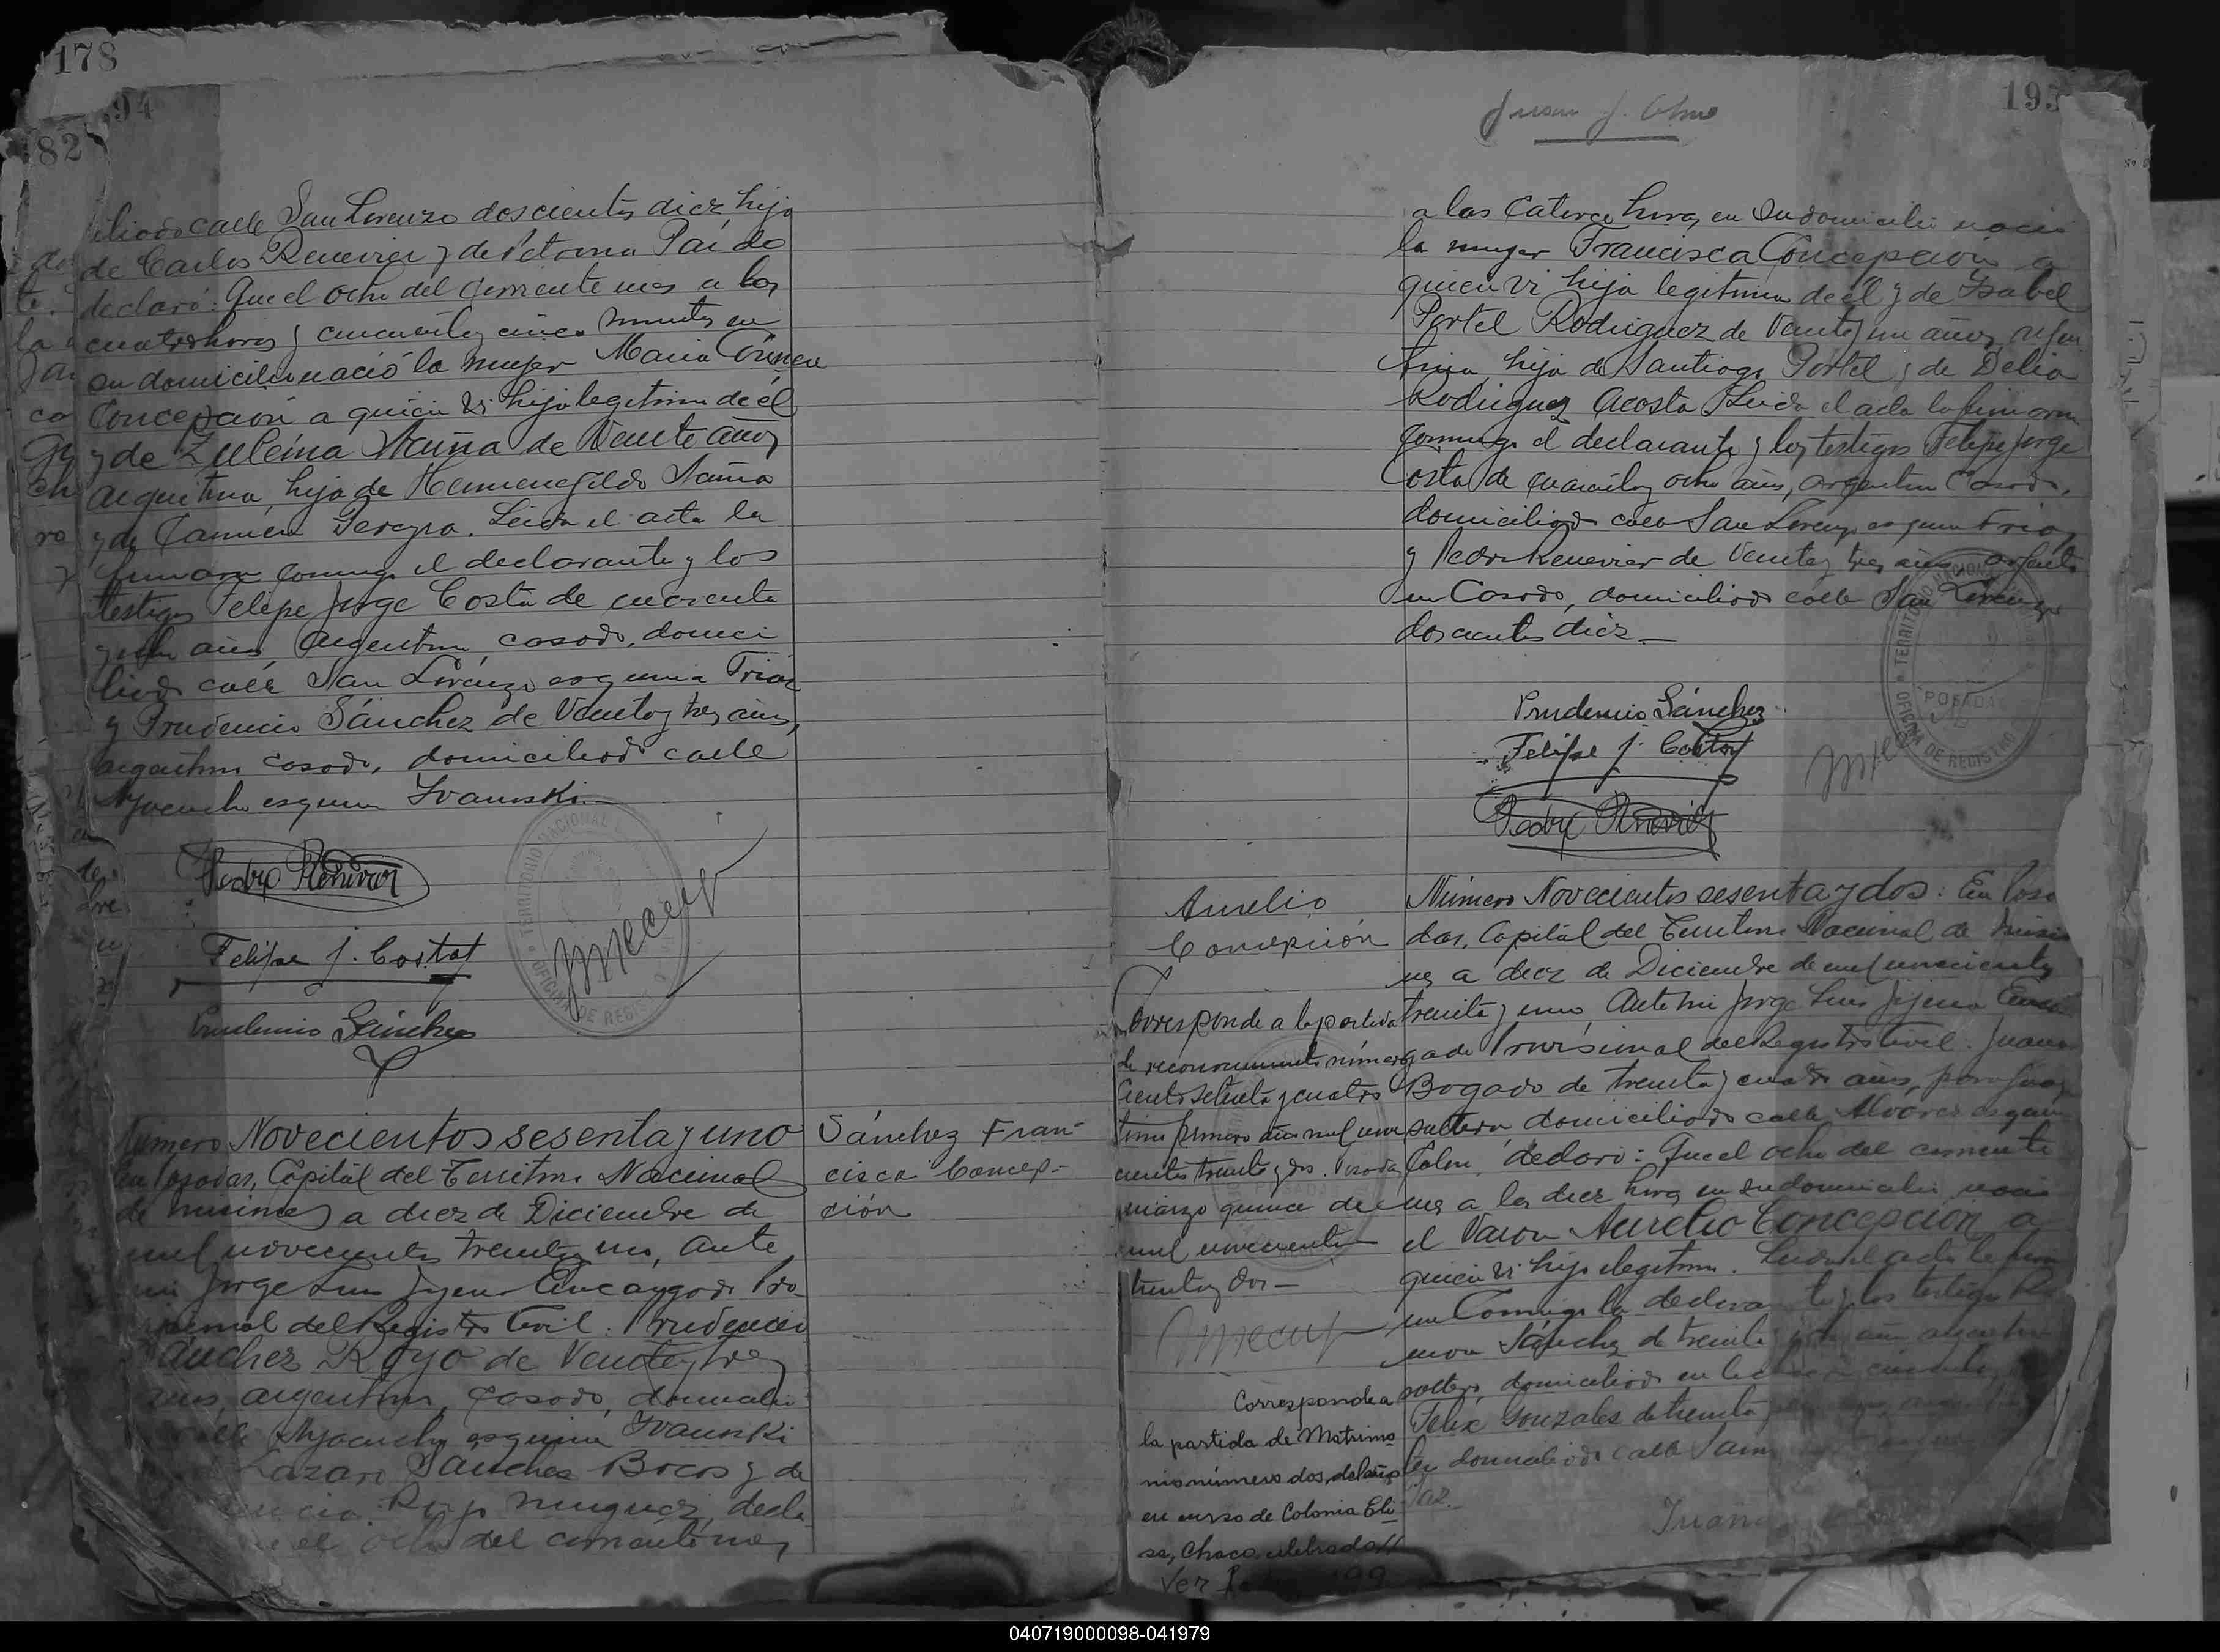 178
94
82
iliado calle San Lorenzo doscientos diez, hijo
de Carlos Renevier y de Petrona Pais do
declaró: Que el ocho del corriente mes a las
cuatro horas y cincuenta y cinco minutos en
su domicilio nació la mujer Maria
Concepción a quien vi hija legitima de él
y de Zulema Acuña de Veinte años
argentina, hija de Hermenegildo Acuña
y de Carmen Pereyra. Leida el acta la
firmaron conmigo el declarante y los
testigos Felipe Jorge Costa de cuarenta
y ocho años, argentino casado, domici
liado calle San Lorenzo esquina Frias
y Prudencio Sánchez de Veinte y tres años,
argentino casado, domiciliado calle
Ayacucho esquina Ivanoski.
Pedro Renevier
Felipe J. Costa
Prudencio Sánchez
TERRITORIO NACIONAL
OFICINA DE REGISTRO
Número Novecientos sesenta y uno
En Posadas, Capital del Territorio Nacional
de Misiones a diez de Diciembre de
mil novecientos treinta y uno, Ante
mi Jorge Luis Jijena Encargado Pro
visional del Registro Civil: Prudencio
Sánchez Royo de Veinte y tres
años, argentino, casado, domicili
calle Ayacucho esquina Ivanoski
Lazaro Sánchez Bocos y de
Royo Minguez, decla
el ocho del corriente mes
Sánchez Fran-
cisca Concep-
ción
195
Juan J.
a las Catorce horas, en su domicilio nació
la mujer Francisca Concepción a
quien vi hija legitima de él y de Isabel
Portel Rodriguez de Veinte y un años, argen
tina, hija de Santiago Portel y de Delia
Rodriguez Acosta Leida el acta la firmaron
conmigo el declarante y los testigos Felipe Jorge
Costa de cuarenta y ocho años, argentino Casado,
domiciliado calle San Lorenzo esquina Frias
y Pedro Renevier de Veinte y tres años, argenti
no Casado, domiciliado calle San Lorenzo
doscientos diez
Prudencio Sánchez
Felipe J. Costa
Pedro Renevier
TERRITORIO NACIONAL
POSADAS
OFICINA DE REGISTRO
Aurelio
Concepción
Corresponde a la partida
de reconocimiento número
Ciento setenta y cuatro
tomo primero año mil nove
cientos treinta y dos. Posadas
marzo quince de
mil novecientos
treinta y dos
Corresponde a
la partida de Matrimo
nio número dos, del año
en curso de Colonia Eli
sa, Chaco, celebrado //
Ver
Número Novecientos sesenta y dos: En Posa
das, Capital del Territorio Nacional de Misio
nes a diez de Diciembre de mil novecientos
treinta y uno, Ante mi Jorge Luis Jijena Encar
gado Provisional del Registro Civil: Juana
Bogado de treinta y cuatro años, paraguaya
soltera domiciliada calle Alvarez esquina
Colon, declaró: Que el ocho del corriente
mes a las diez horas en su domicilio nació
el Varon Aurelio Concepción a
quien vi hijo ilegitimo. Leida el acta la firma
ron Conmigo la declarante y los testigos Ra
mon Sánchez de treinta y años argentino
soltero, domiciliado en
Felix Gonzalez de treinta
domiciliado calle
Paz.
Juana
040719000098-041979